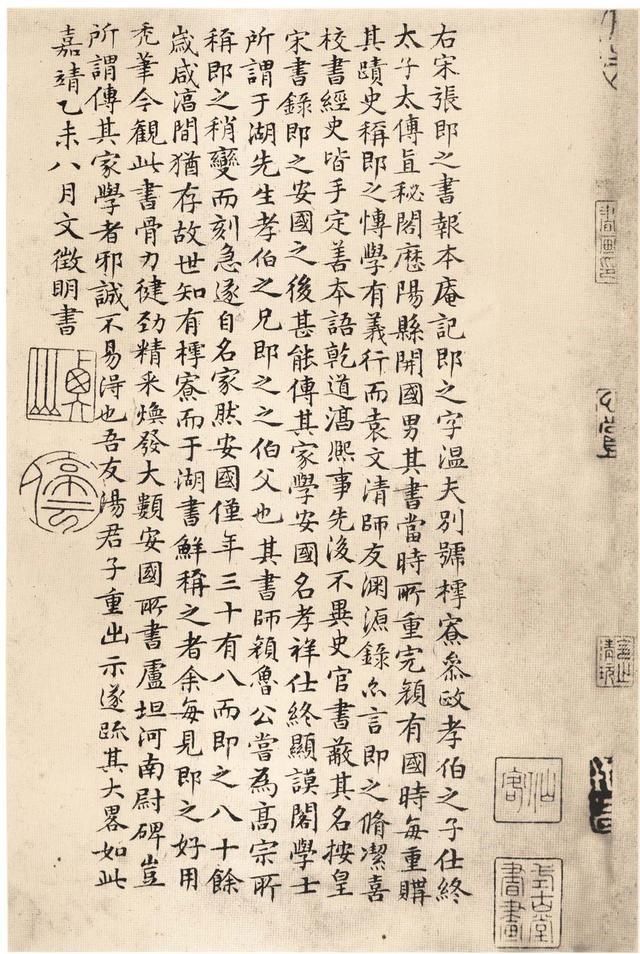 右宋張即之書報本庵記即之字溫夫別號樗寮叅政孝伯之子仕終
太子太傅直秘閣歷陽縣開國男其書當時所重完顏有國時每重購
其蹟史稱即之慱學有義行而袁文清師友淵源錄亦言即之脩潔喜
校書經史皆手定善本語乾道淳熙事先後不異史官書蔽其名按皇
宋書錄即之安國之後甚能傳其家學安國名孝祥仕終顯謨閣學士
所謂于湖先生孝伯之兄即之之伯父也其書師顏魯公嘗為高宗所
稱即之稍變而刻急遂自名家然安國僅年三十有八而即之八十餘
歲咸淳間猶存故世知有樗寮而于湖書鮮稱之者余每見即之好用
禿筆今觀此書骨力健勁精采煥發大類安國所書盧坦河南尉碑豈
所謂傳其家學者邪誠不易得也吾友湯君子重出示遂疏其大畧如此
嘉靖乙未八月文徵明書
停雲
仙客